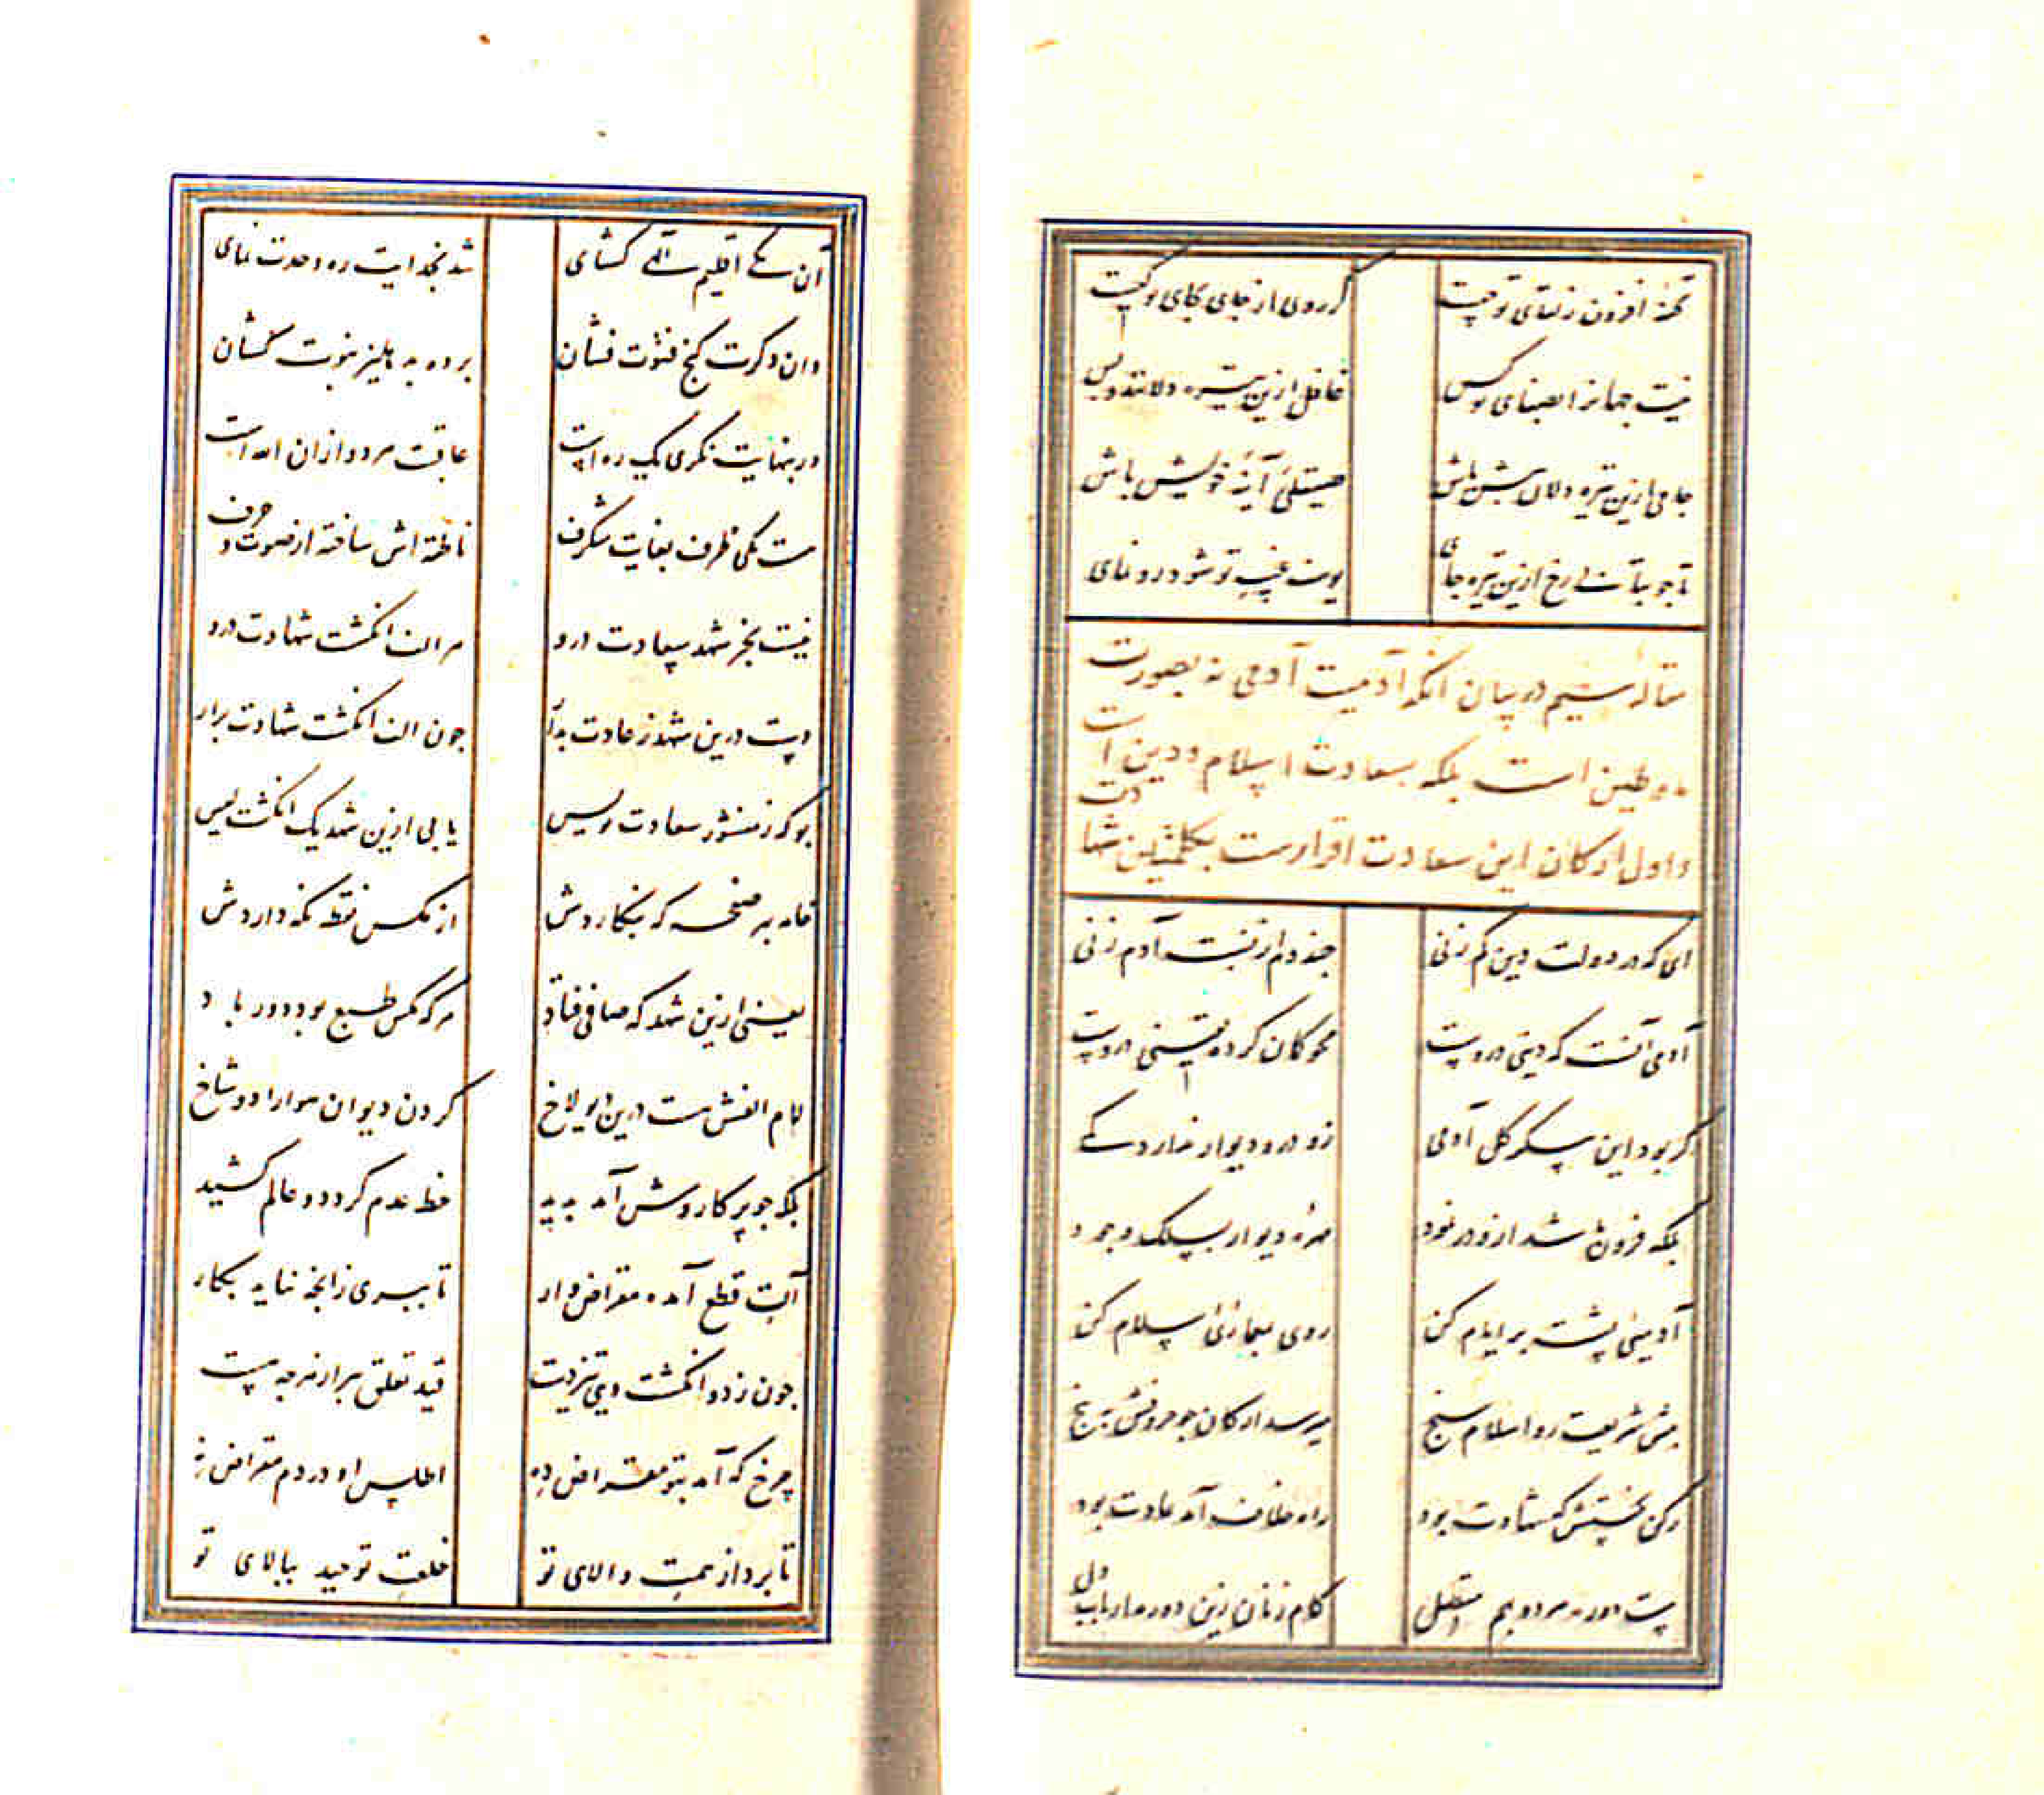 تحفه افزون ز لقای تو چیست گر روی از جای بجای تو کیست
نیست جهانرا بصفای تو کس غافل ازین تیره دلانند و بس
جامی ازین تیره دلان پیش باش صیقلی آینهٔ خویش باش
تا چو بتابی رخ ازین تیره جای یوسف غیب تو شود رو نمای
مقاله سیم در بیان آنکه آدمیت آدمی نه بصورت
ماء و طین است بلکه بسعادت اسلام و دین است
و اول ارکان این سعادت اقرارست بکلمتین شهادت
ای که در دولت دین کم زنی چند دم از نسبت آدم زنی
آدمی آنست که دینی دروست محو گمان کرده یقینی دروست
گر بود این پیکر گل آدمی زو در و دیوار ندارد کمی
بلکه فزون شد از و در نمود مهرهٔ دیوار بسنگ و عمود
آدمیی پشت بر ابرام کن روی بمعماری اسلام کن
پیش شریعت رو اسلام سنج میرسد ارکان چو حروفش به پنج
رکن نخستینش شهادت بود راه خلاف آمد عادت بود
هست درو هر دو بهم متصل کام زنان زین دو در ارباب دل
آن یکی اقلیم الهی گشای شد بخداییت ره وحدت نمای
وان دگرت گنج فتوت فشان برده به دهلیز نبوت کشان
ور بنهایت نگری یک ره است عاقبت هر دو از ان الله است
هست یکی ظرف بغایت شگرف ناطقه اش ساخته از صوت و حرف
نیست بجز شهد سعادت درو هر الف انگشت شهادت درو
دست درین شهد ز عادت بدار چون الف انگشت شهادت برار
بو که ز منشور سعادت نویس یابی ازین شهد یک انگشت لیس
خامه بر صفحه که بنگاردش از مگس نقطه نگه داردش
یعنی ازین شهد که صافی فتاد هر که مگس طبع بود دور باد
لام الفش هست درین دیولاخ گردن دیوان هوا را دو شاخ
بلکه چو پرگار وش آمد پدید خط عدم گرد دو عالم کشید
آلت قطع آمده مقراض وار تا ببری ز انچه نیاید بکار
چون ز دو انگشت دهی تیزیت قید تعلق ببر از هر چه هست
چرخ که آمد بتو مقراض ده اطلس او در دم مقراض نه
تا برد از همت والای تو خلعت توحید ببالای تو